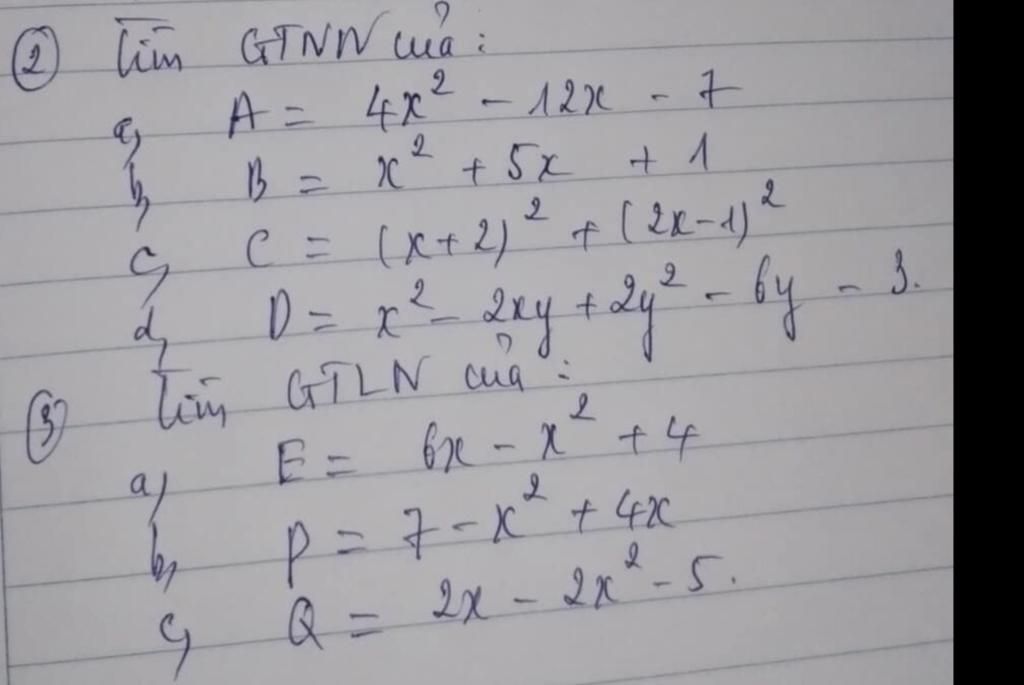 ② Tìm GTNN của :
a, A = 4x² - 12x - 7
b, B = x² + 5x + 1
c, C = (x+2)² + (2x-1)²
d, D = x² - 2xy + 2y² - 6y - 3.
③ Tìm GTLN của :
a, E = 6x - x² + 4
b, P = 7 - x² + 4x
c, Q = 2x - 2x² - 5.